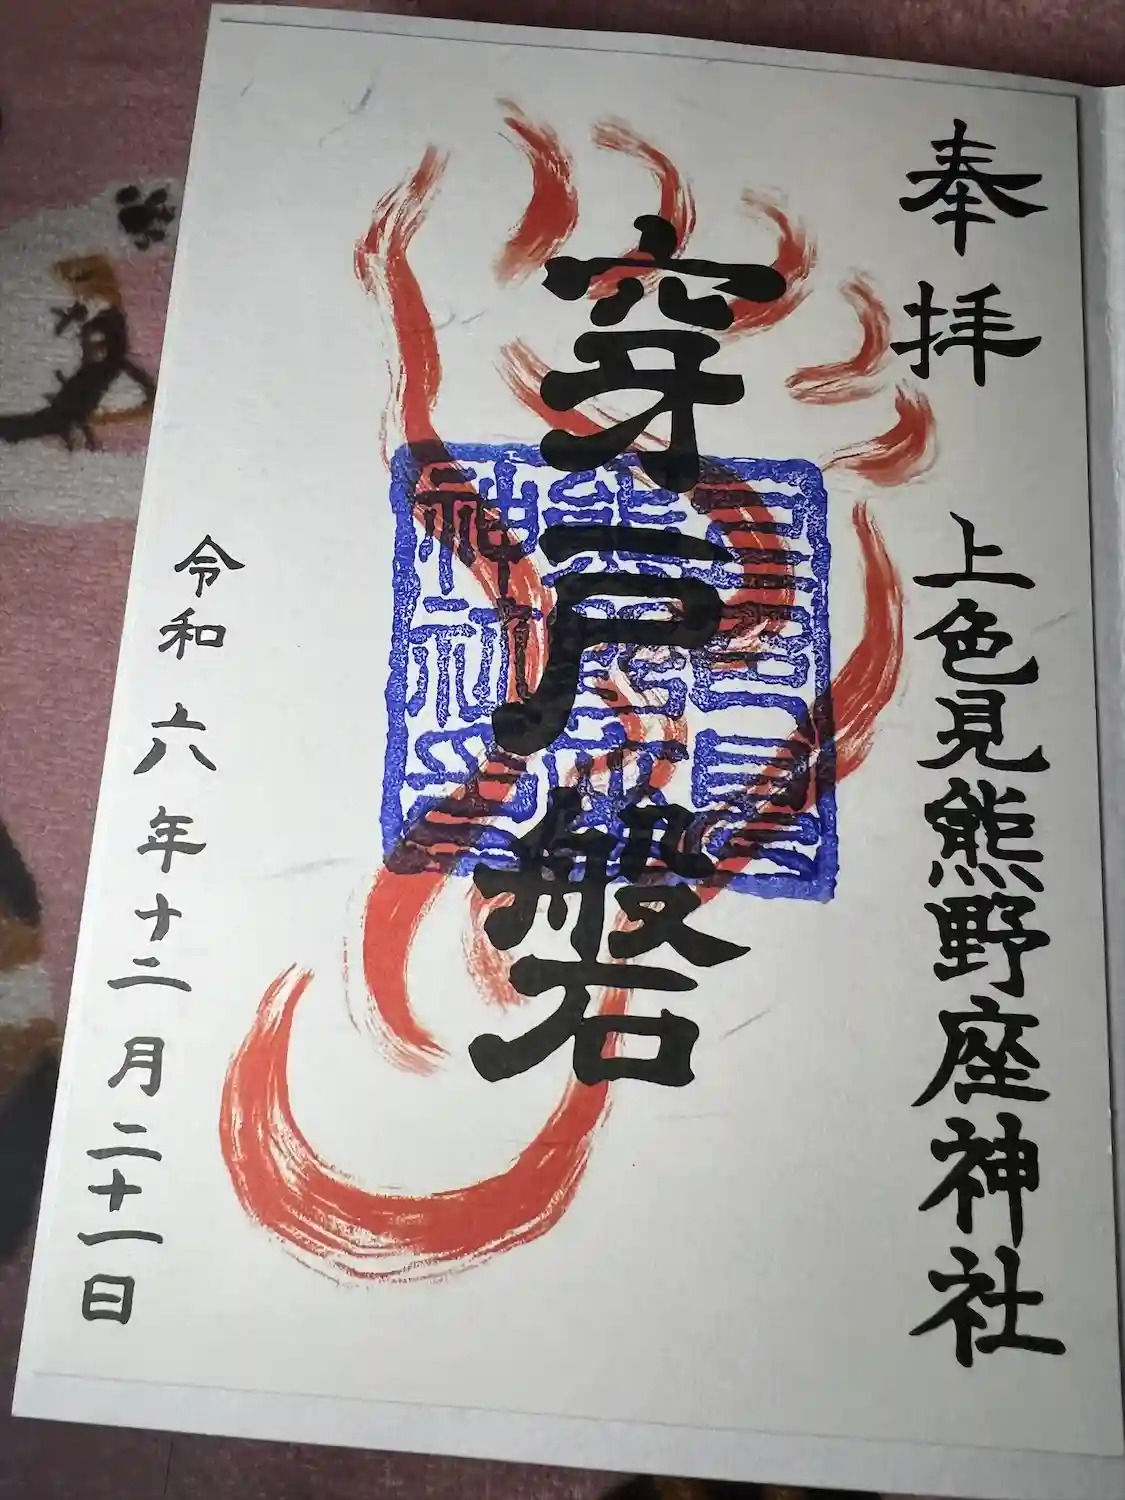 奉拝
上色見熊野座神社
穿戸磐
上色見
熊野座
神社之印
令和六年十二月二十一日